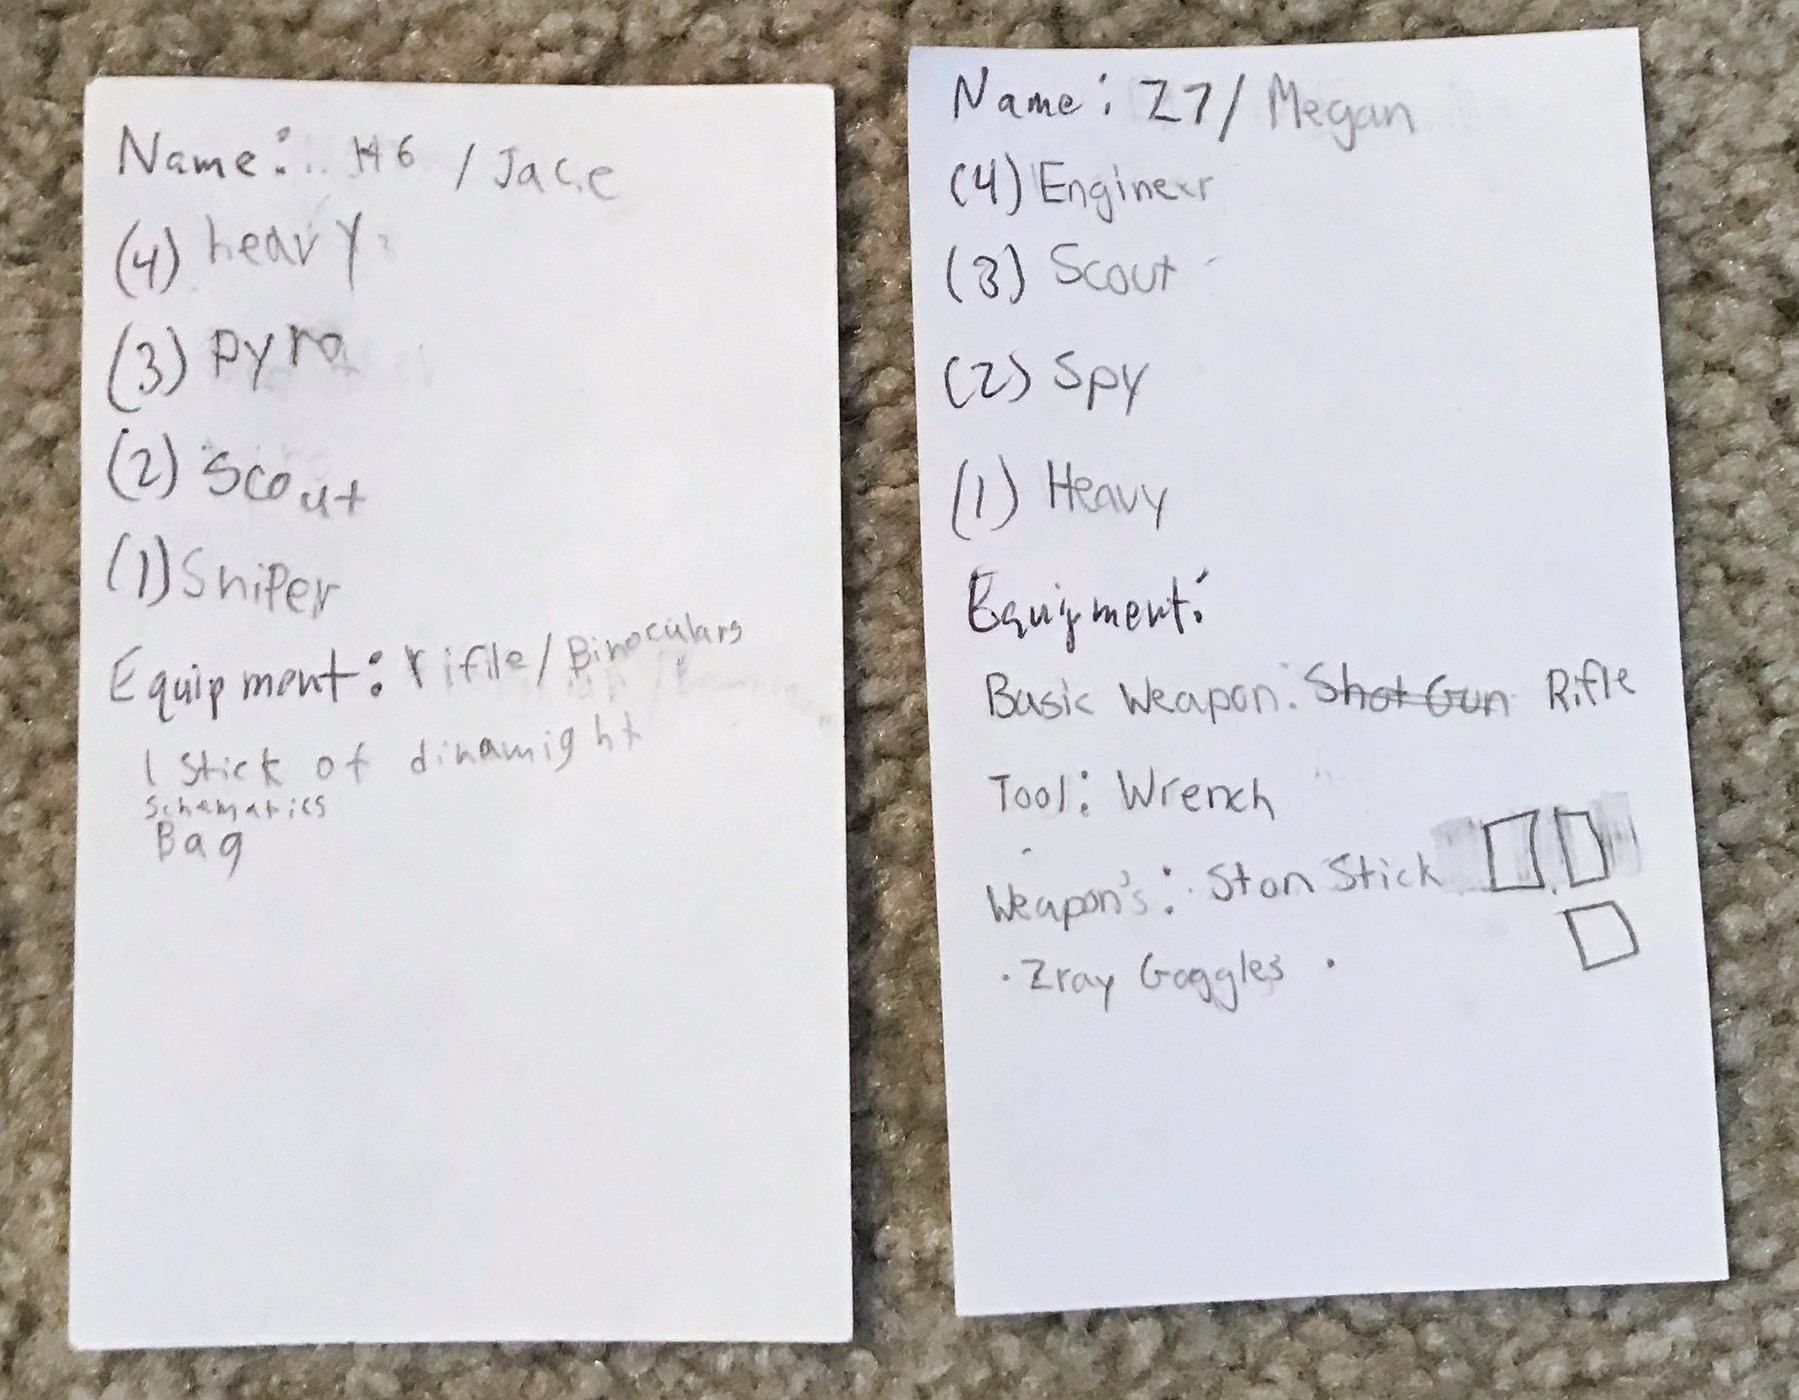 Name: H6 / Jace
(4) heavy
(3) pyro
(2) Scout
(1) Sniper
Equipment: rifile / Binoculars
1 Stick of dinamight
Schematics
Bag
Name: Z7 / Megan
(4) Engineer
(3) Scout
(2) Spy
(1) Heavy
Equipment:
Basic Weapon: Shot Gun Rifle
Tool: Wrench
Weapon's: Ston Stick
· Zray Goggles ·